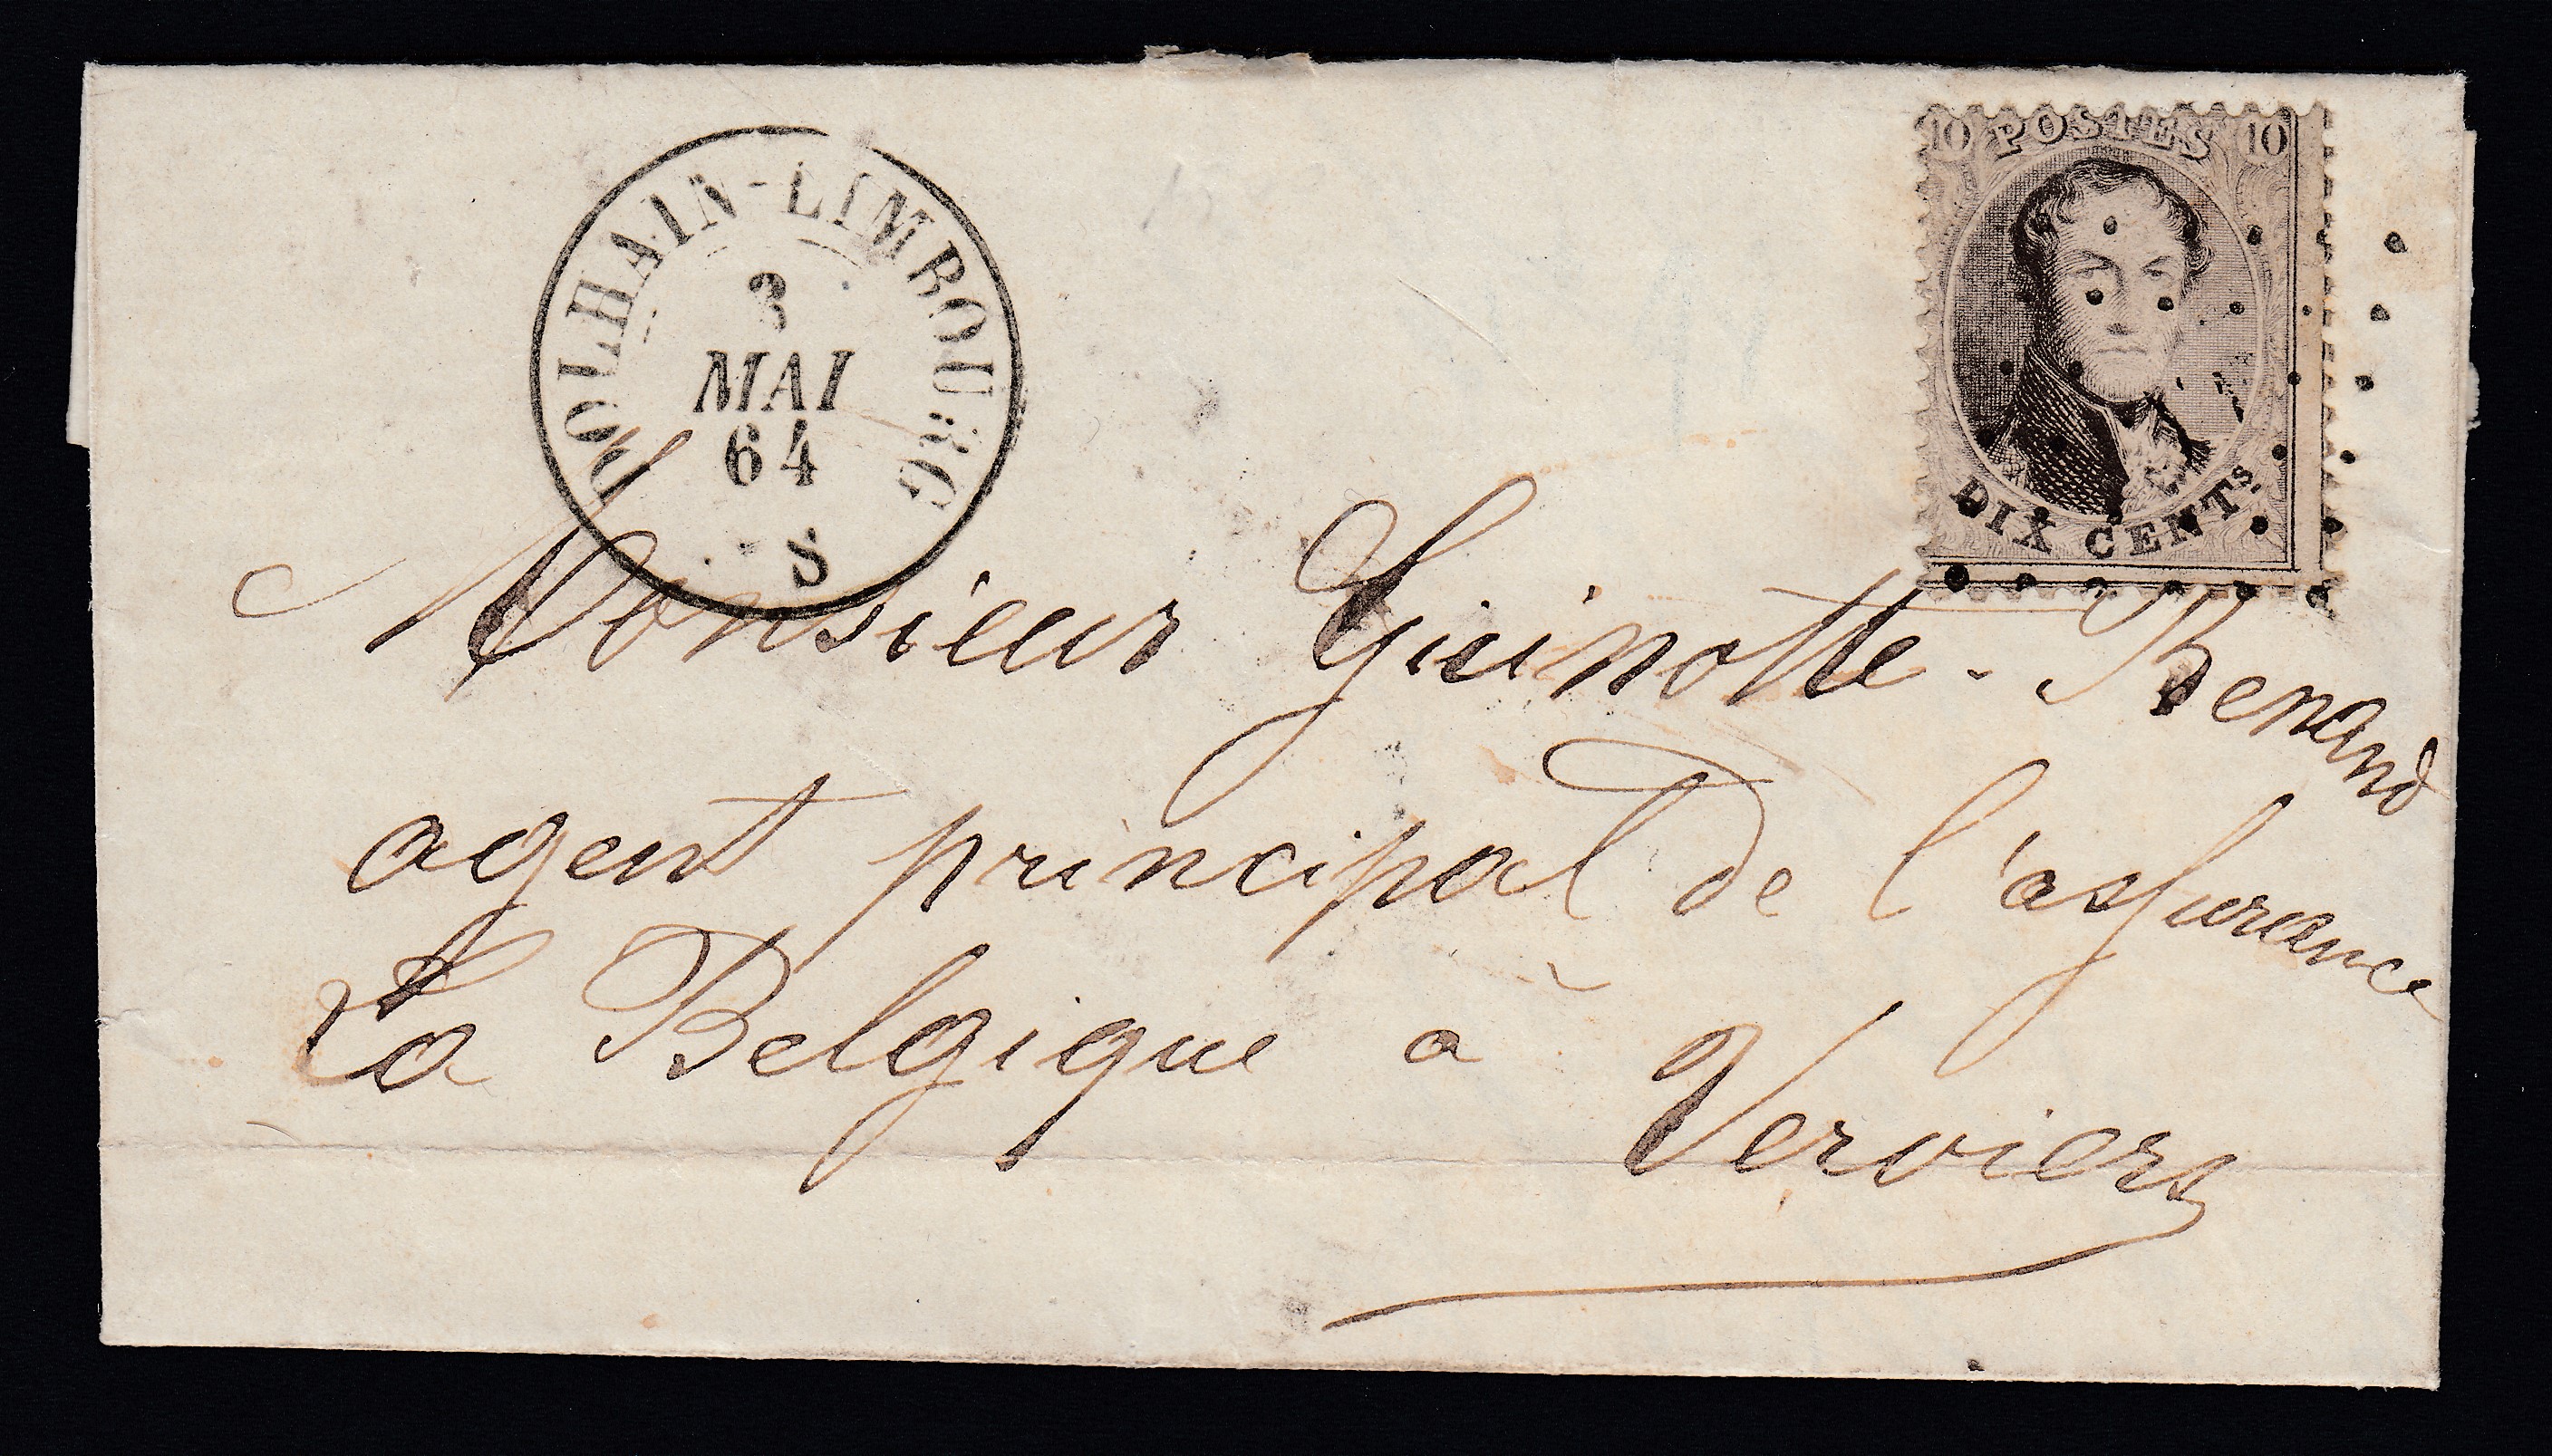 10 POSTES 10
DOLHAIN-LIMBOURG
3
MAI
64
S
DIX CENTS.
Monsieur Guinotte-Renard
agent principal de l'assurance
La Belgique à Verviers